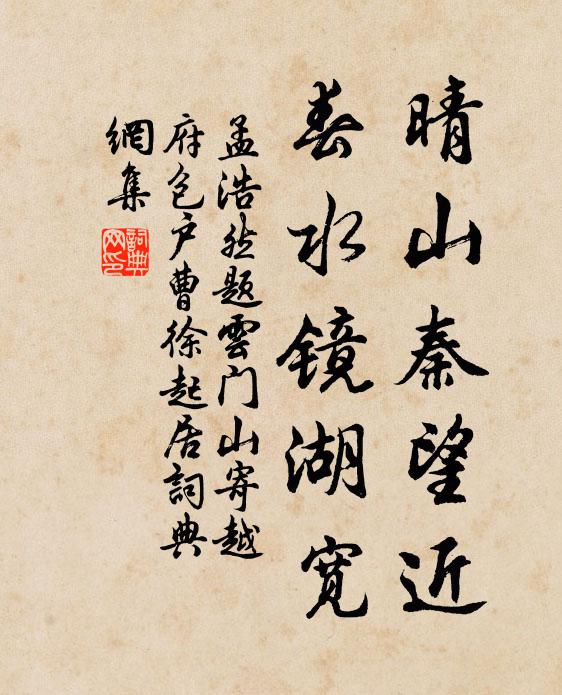 晴山秦望近
春水镜湖宽
孟浩然题雲门山寄越
府包户曹徐起居詞典
網集
詞典网印